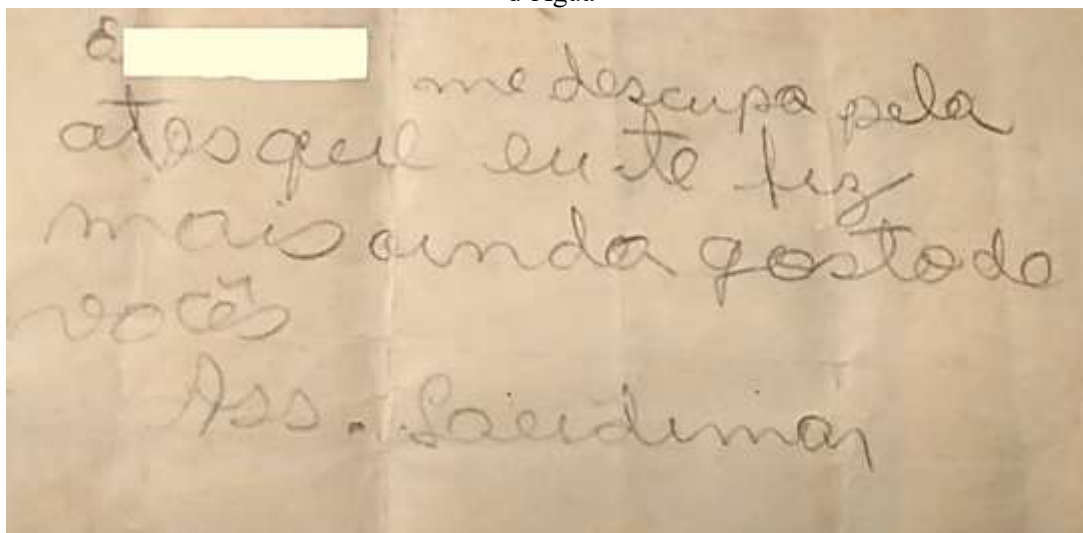 E. me descupa pela
atos que eu te fiz
mais ainda gosto de
vocês
Ass. Laudimar